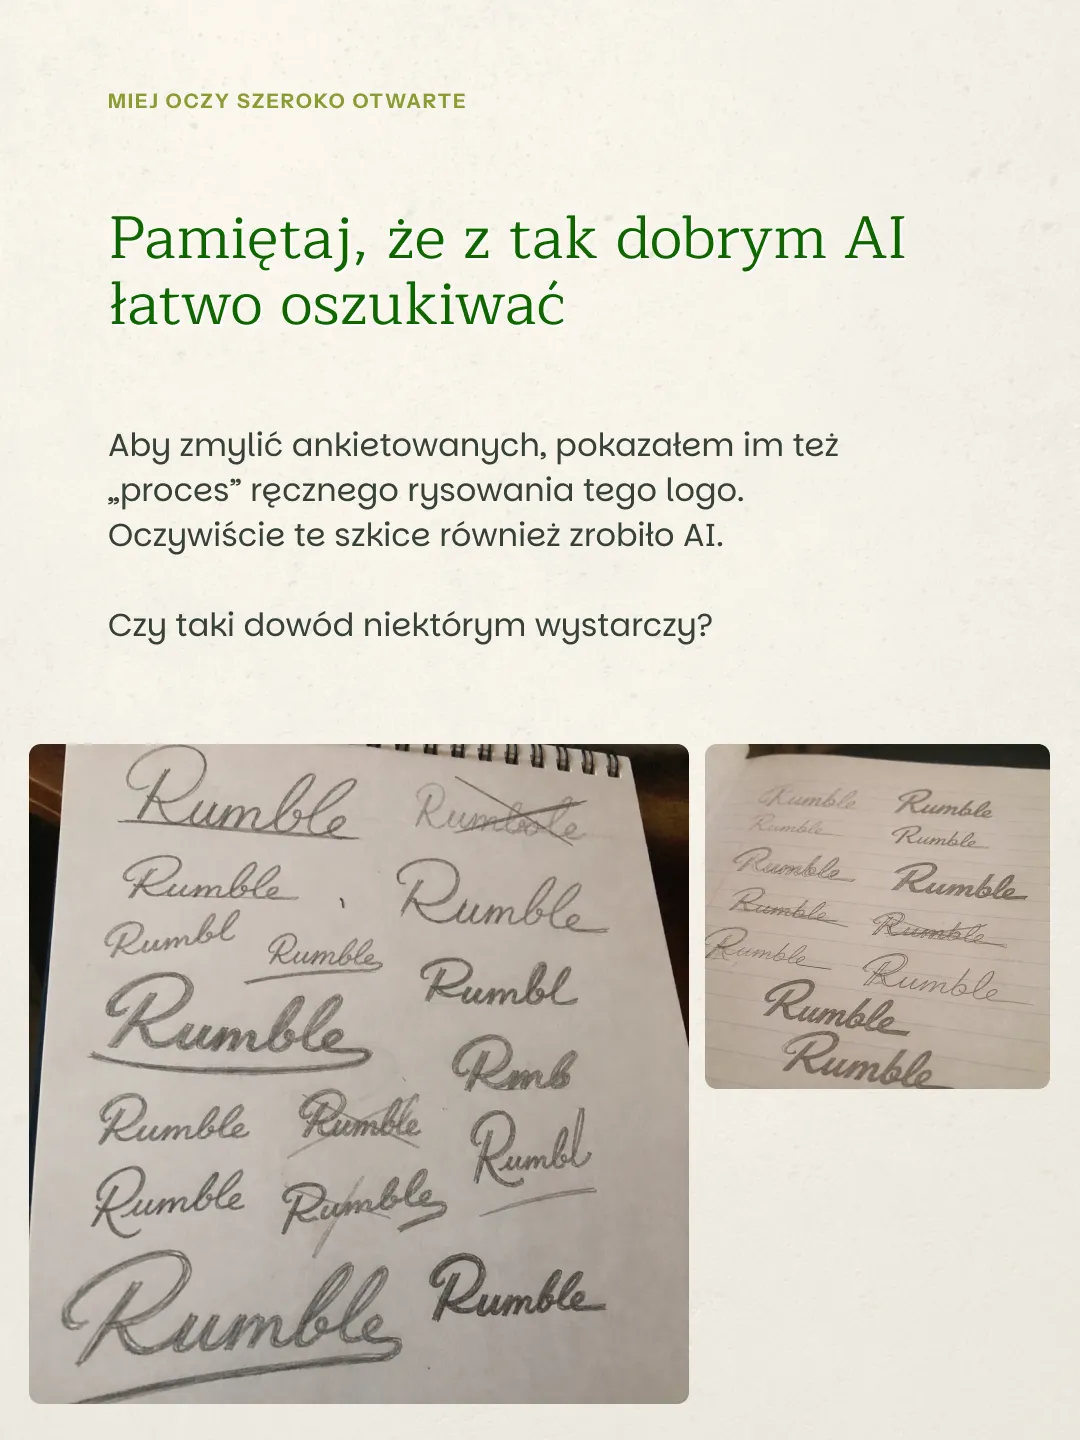 MIEJ OCZY SZEROKO OTWARTE
Pamiętaj, że z tak dobrym AI
łatwo oszukiwać
Aby zmylić ankietowanych, pokazałem im też
„proces” ręcznego rysowania tego logo.
Oczywiście te szkice również zrobiło AI.
Czy taki dowód niektórym wystarczy?
Rumble
Rumble
Rumbl
Rumble
Rumble
Rumble
Rumble
Rumble
Rumble
Rumble
Rumble
Rumbl
Rmb
Rumbl
Rumble
Rumble
Rumble
Rumble
Rumble
Rumble
Rumble
Rumble
Rumble
Rumble
Rumble
Rumble
Rumble
Rumble